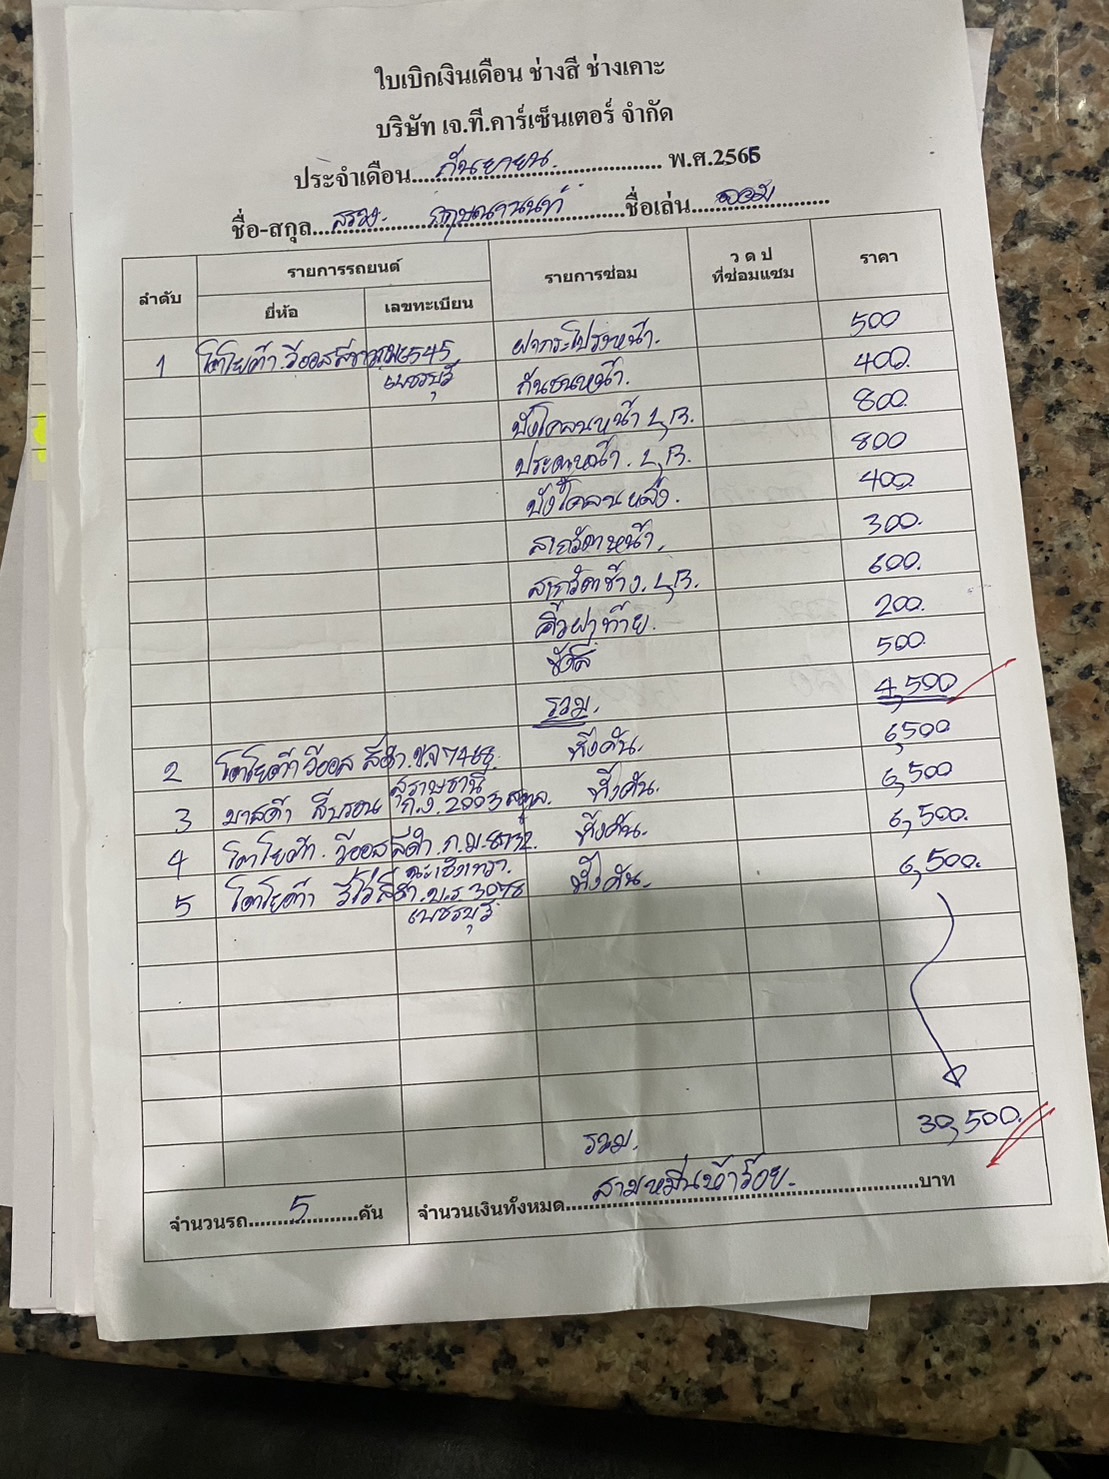 ใบเบิกเงินเดือน ช่างสี ช่างเคาะ
บริษัท เจ.ที.คาร์เซ็นเตอร์ จำกัด
ประจำเดือน....กันยายน.... พ.ศ.2565
ชื่อ-สกุล.... กฤษณานนท์ ....ชื่อเล่น....
ลำดับ รายการรถยนต์ รายการซ่อม ว ด ป ที่ซ่อมแซม ราคา
ยี่ห้อ เลขทะเบียน
1 โตโยต้า.วีออส 6545 ฝากระโปรงหน้า. 500
เพชรบุรี กันชนหน้า. 400.
บังโคลนหน้า L,R. 800.
ประตูหน้า. L,R. 800
บังโคลนหลัง. 400
สเกิร์ตหน้า. 300.
สเกิร์ตข้าง. L,R. 600.
คิ้วฝาท้าย. 200.
ขัดสี 500
รวม. 4,500
2 โตโยต้า วีออส สีดำ. 7468. ทั้งคัน. 6,500
สุราษธานี
3 มาสด้า สีบรอน ก.ง.2003 สตูล. ทั้งคัน. 6,500
4 โตโยต้า. วีออสสีดำ.ก.ม.8732. ทั้งคัน. 6,500.
ฉะเชิงเทรา.
5 โตโยต้า รีโว่สีดำ.บ.ร.3078 ทั้งคัน. 6,500.
เพชรบุรี
รวม. 30,500.
จำนวนรถ....5....คัน จำนวนเงินทั้งหมด....สามหมื่นห้าร้อย.....บาท